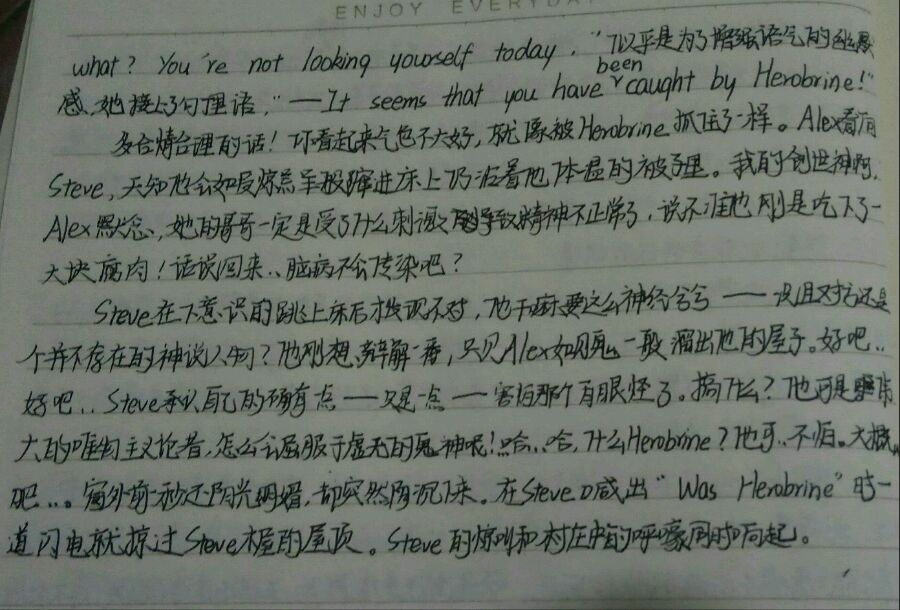 ENJOY EVERYDA
what? You're not looking yourself today. "似乎是为了增强语气的幽默
感,她接了句俚语,"——It seems that you have been caught by Herobrine!"
多合情合理的话!你看起来气色不大好,就像被Herobrine抓住了一样。Alex看有
Steve,天知他会如受惊羔羊般蹿进床上仍沾着他体温的被子里。我的创世神啊,
Alex默念,她的哥哥一定是受了什么刺激导致精神不正常了,说不准他刚是吃下了一
大块腐肉!话说回来..脑病不会传染吧?
Steve在下意识的跳上床后才发现不对,他干嘛要这么神经兮兮——况且对方还是
个并不存在的神说人物?他刚想辩解一番,只见Alex如见鬼一般溜出他的屋子。好吧..
好吧..Steve承认自己的确有点——只是一点——害怕那个白眼怪了。搞什么?他可是
大的唯物主义论者,怎么会屈服于虚无的鬼神呢!哈..哈,什么Herobrine?他可..不怕。大概
吧...。窗外前秒还阳光明媚,却突然阴沉下来。在Steve喊出"Was Herobrine"时一
道闪电就掠过Steve木屋的屋顶。Steve的惊叫和村庄中的呼嚎同时响起。